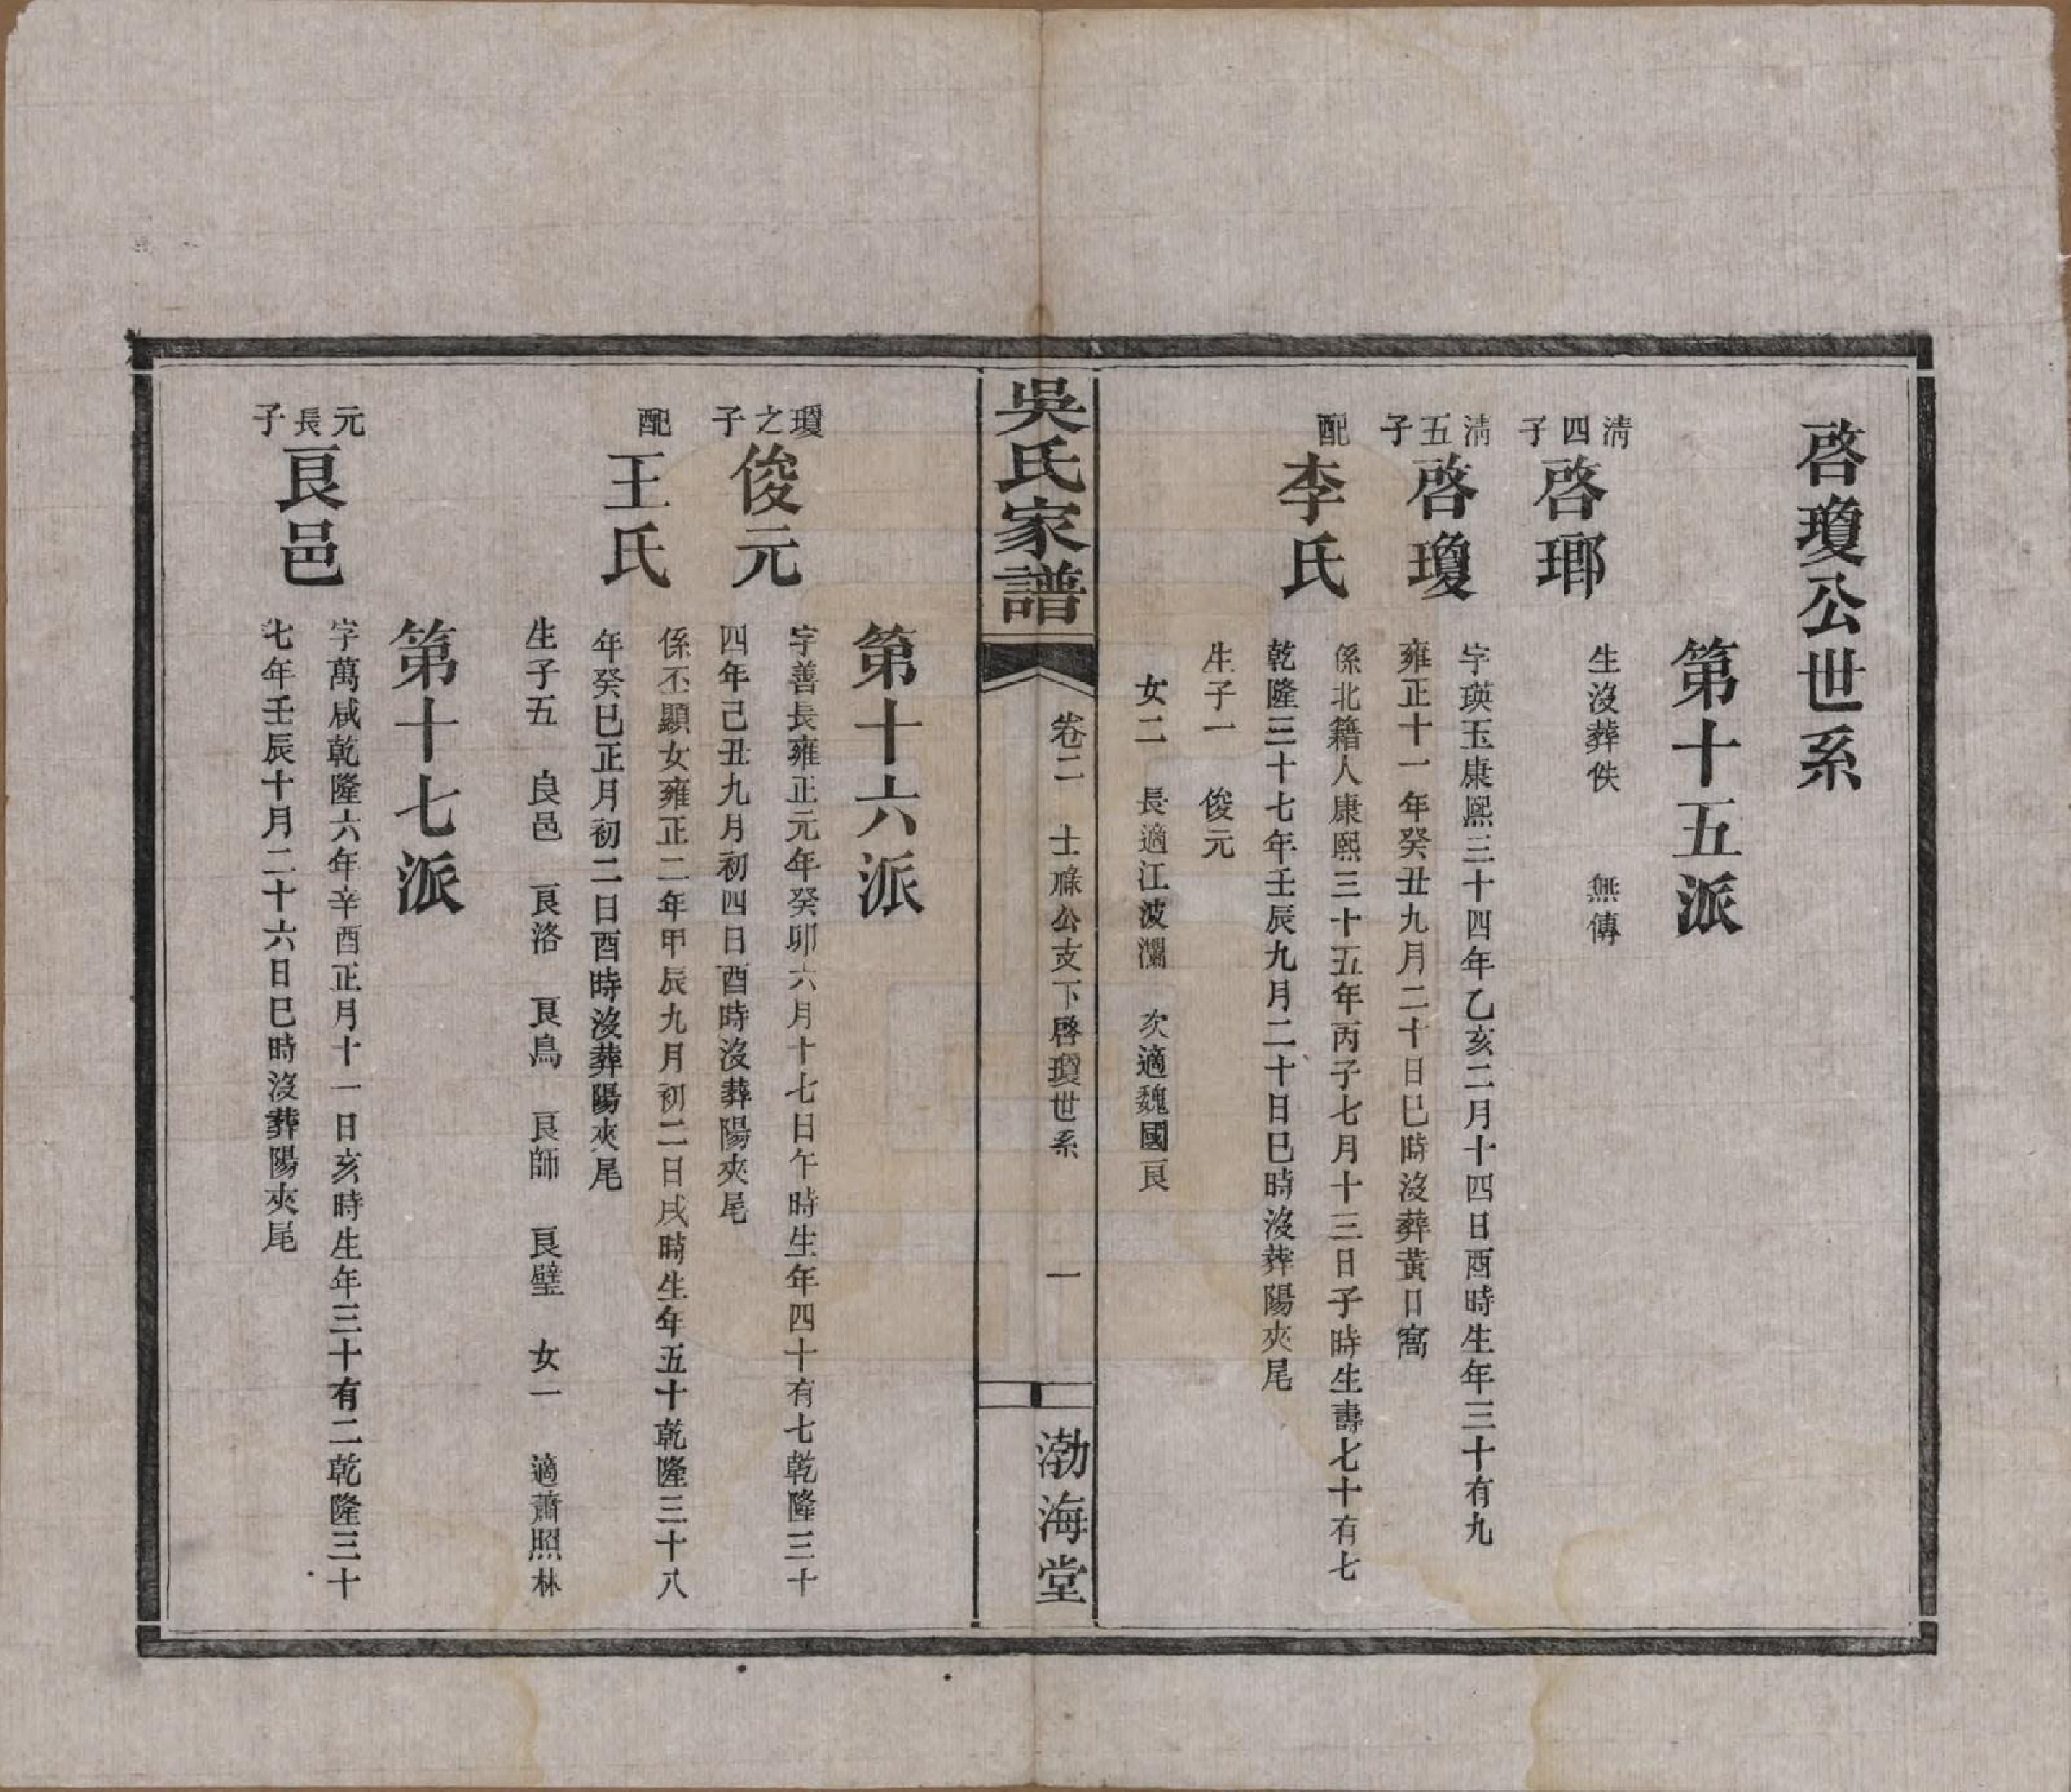 啓瓊公世系
第十五派
清四子 啓瑘 生沒葬佚 無傳
清五子 啓瓊 字瑛玉康熙三十四年乙亥二月十四日酉時生年三十有九
雍正十一年癸丑九月二十日巳時沒葬黃日窩
配 李氏 係北籍人康熙三十五年丙子七月十三日子時生壽七十有七
乾隆三十七年壬辰九月二十日巳時沒葬陽夾尾
生子一 俊元
女二 長適江波瀾 次適魏國良
吳氏家譜 卷二 士祿公支下啓瓊世系 一 渤海堂
第十六派
瓊之子 俊元 字善長雍正元年癸卯六月十七日午時生年四十有七乾隆三十
四年己丑九月初四日酉時沒葬陽夾尾
配 王氏 係丕顯女雍正二年甲辰九月初二日戌時生年五十乾隆三十八
年癸巳正月初二日酉時沒葬陽夾尾
生子五 良邑 良洛 良鳥 良師 良璧 女一 適蕭照林
第十七派
元長子 良邑 字萬咸乾隆六年辛酉正月十一日亥時生年三十有二乾隆三十
七年壬辰十月二十六日巳時沒葬陽夾尾